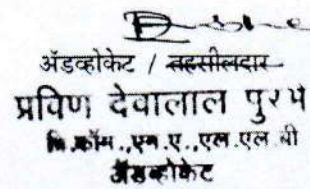 ॲडव्होकेट / तहसीलदार
प्रविण देवालाल पुरभे
बि.कॉम.,एम.ए.,एल.एल.बी
ॲडव्होकेट